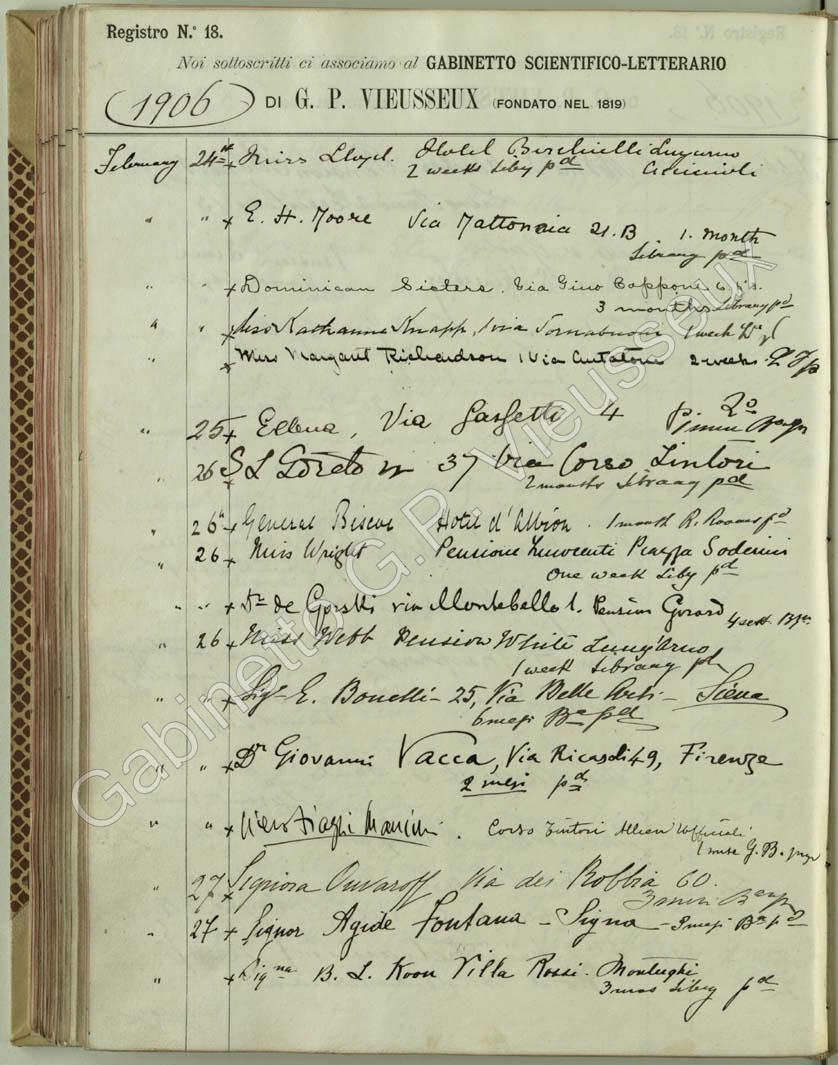 Registro N.º 18.
Noi sottoscritti ci associamo al GABINETTO SCIENTIFICO-LETTERARIO
1906 DI G. P. VIEUSSEUX (FONDATO NEL 1819)
February 24th x Miss Lloyd. Hotel Berchielli Lungarno
2 weeks Liby pd Acciaioli
" " x E. H. Moore Via Mattonaia 21.B 1. month
Library pd
" " x Dominican Sisters. Via Gino Capponi
3 months Library pd
" " Katharine Knapp, 1 via Tornabuoni 1 week
" x Miss Margaret Richardson 1 Via Curtatone 2 weeks
" 25 x Via 4
26 x 37 Via Corso Tintori
2 months Library pd
" 26 x General Biscoe Hotel d'Albion. 1 month R. Rooms pd
" 26 x Miss Wright Pensione Innocenti Piazza Soderini
One week Liby pd
" " x Dr de via Montebello 1. Pension Girard
" 26 x Miss Webb Pension White Lung'Arno
1 week Library pd
" " x E. Bonelli - 25, Via Belle Arti - Siena
6 mesi pd
" " x Dr Giovanni Vacca, Via Ricasoli 49, Firenze
2 mesi pd
" " x Piero Mancini. Corso Tintori Allievi Ufficiali
1 mese G. B.
" 27 x Signora Ouvaroff Via dei Robbia 60.
" 27 x Signor Agide Fontana - Signa - 3 mesi pd
" x Signa B. L. Koon Villa Rossi. Montughi
3 mos Libry pd
Gabinetto G.P. Vieusseux